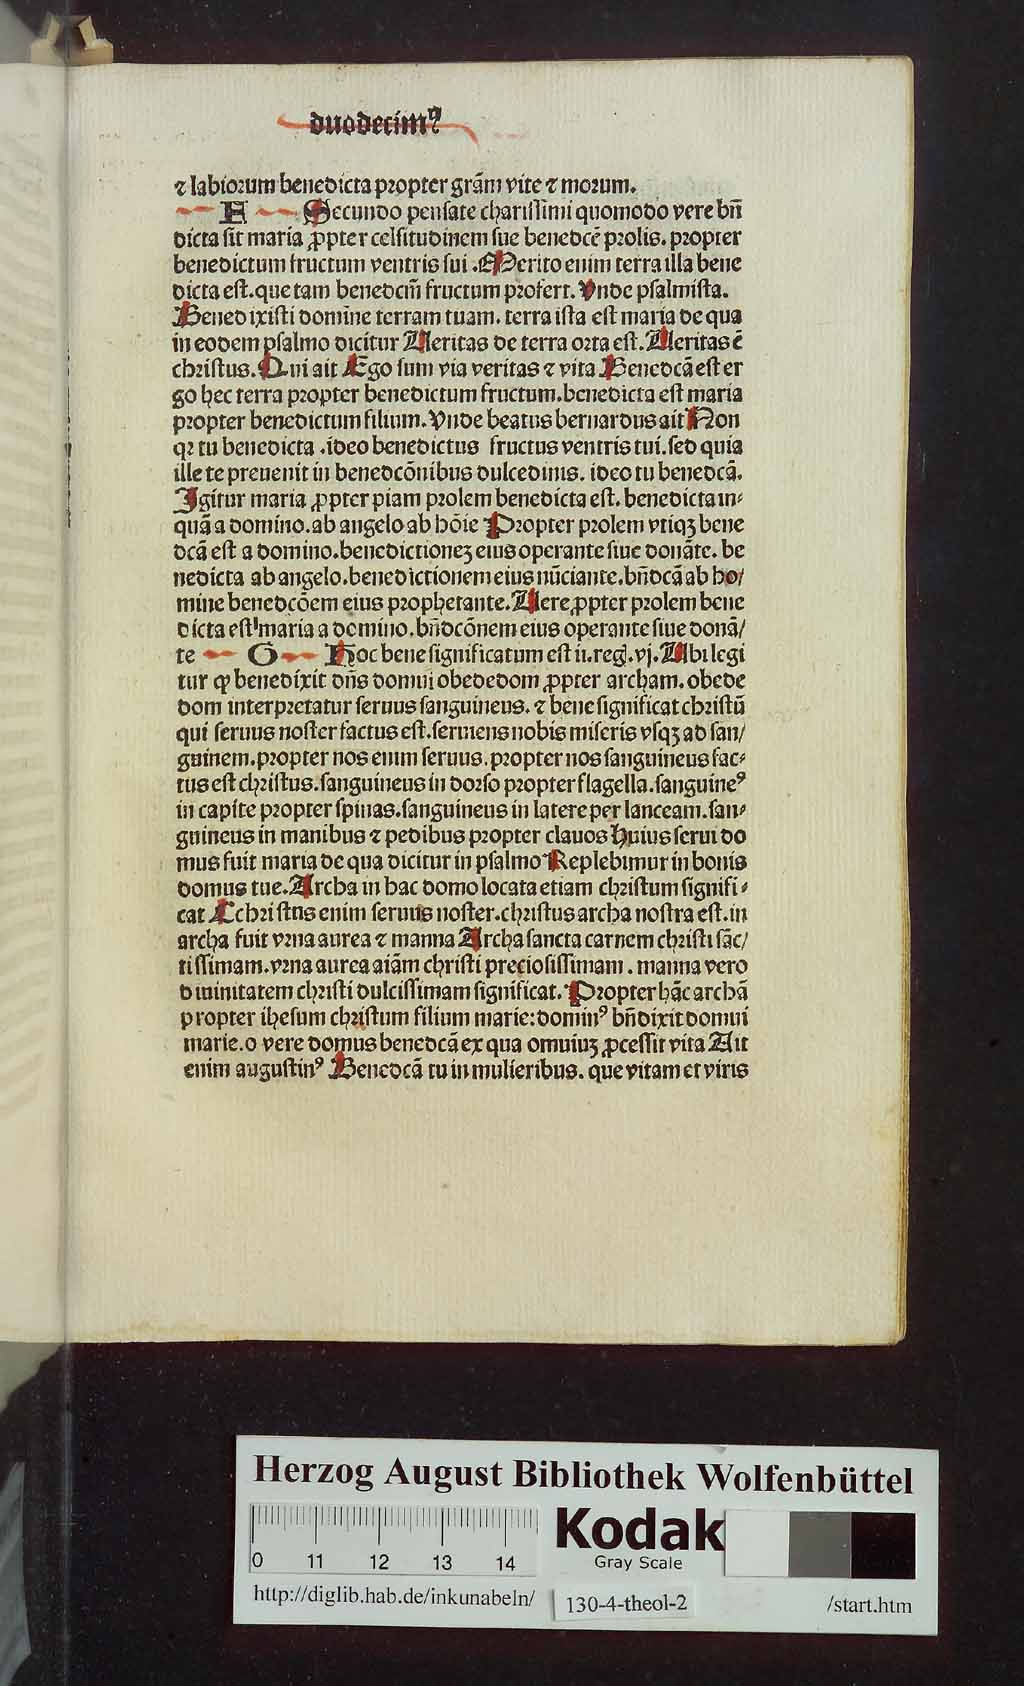 duodecimꝰ
⁊ labiorum benedicta propter grãm vite ⁊ morum.
F Secundo pensate charissimi quomodo vere bñ
dicta sit maria ꝓpter celsitudinem sue benedcẽ prolis. propter
benedictum fructum ventris sui. Merito enim terra illa bene
dicta est. que tam benedcm̃ fructum profert. Vnde psalmista.
Benedixisti domine terram tuam. terra ista est maria de qua
in eodem psalmo dicitur Ueritas de terra orta est. Ueritas ẽ
christus. Qui ait Ego sum via veritas ⁊ vita Benedcã est er
go hec terra propter benedictum fructum. benedicta est maria
propter benedictum filium. Vnde beatus bernardus ait Non
qꝛ tu benedicta. ideo benedictus fructus ventris tui. sed quia
ille te preuenit in benedcõnibus dulcedinis. ideo tu benedcã.
Igitur maria ꝓpter piam prolem benedicta est. benedicta in-
quã a domino. ab angelo ab hõie Propter prolem vtiqꝫ bene
dcã est a domino. benedictioneꝫ eius operante siue donãte. be
nedicta ab angelo. benedictionem eius nũciante. bñdcã ab ho/
mine benedcõem eius prophetante. Uere ꝓpter prolem bene
dicta est maria a domino. bñdcõnem eius operante siue donã/
te G Hoc bene significatum est ii. reg. vj. Ubi legi
tur ꝙ benedixit dñs domui obededom ꝓpter archam. obede
dom interpretatur seruus sanguineus. ⁊ bene significat christũ
qui seruus noster factus est. seruiens nobis miseris vsqꝫ ad san/
guinem. propter nos enim seruus. propter nos sanguineus fac-
tus est christus. sanguineus in dorso propter flagella. sanguineꝰ
in capite propter spinas. sanguineus in latere per lanceam. san-
guineus in manibus ⁊ pedibus propter clauos huius serui do
mus fuit maria de qua dicitur in psalmo Replebimur in bonis
domus tue. Archa in hac domo locata etiam christum signifi-
cat Cchristns enim seruus noster. christus archa nostra est. in
archa fuit vrna aurea ⁊ manna Archa sancta carnem christi sãc/
tissimam. vrna aurea aiãm christi preciosissimam. manna vero
diuinitatem christi dulcissimam significat. Propter hãc archã
propter ihesum christum filium marie: dominꝰ bñdixit domui
marie. o vere domus benedcã ex qua omuiuꝫ ꝓcessit vita Ait
enim augustinꝰ Benedcã tu in mulieribus. que vitam et viris
Herzog August Bibliothek Wolfenbüttel
0 11 12 13 14
Kodak
Gray Scale
http://diglib.hab.de/inkunabeln/ 130-4-theol-2 /start.htm